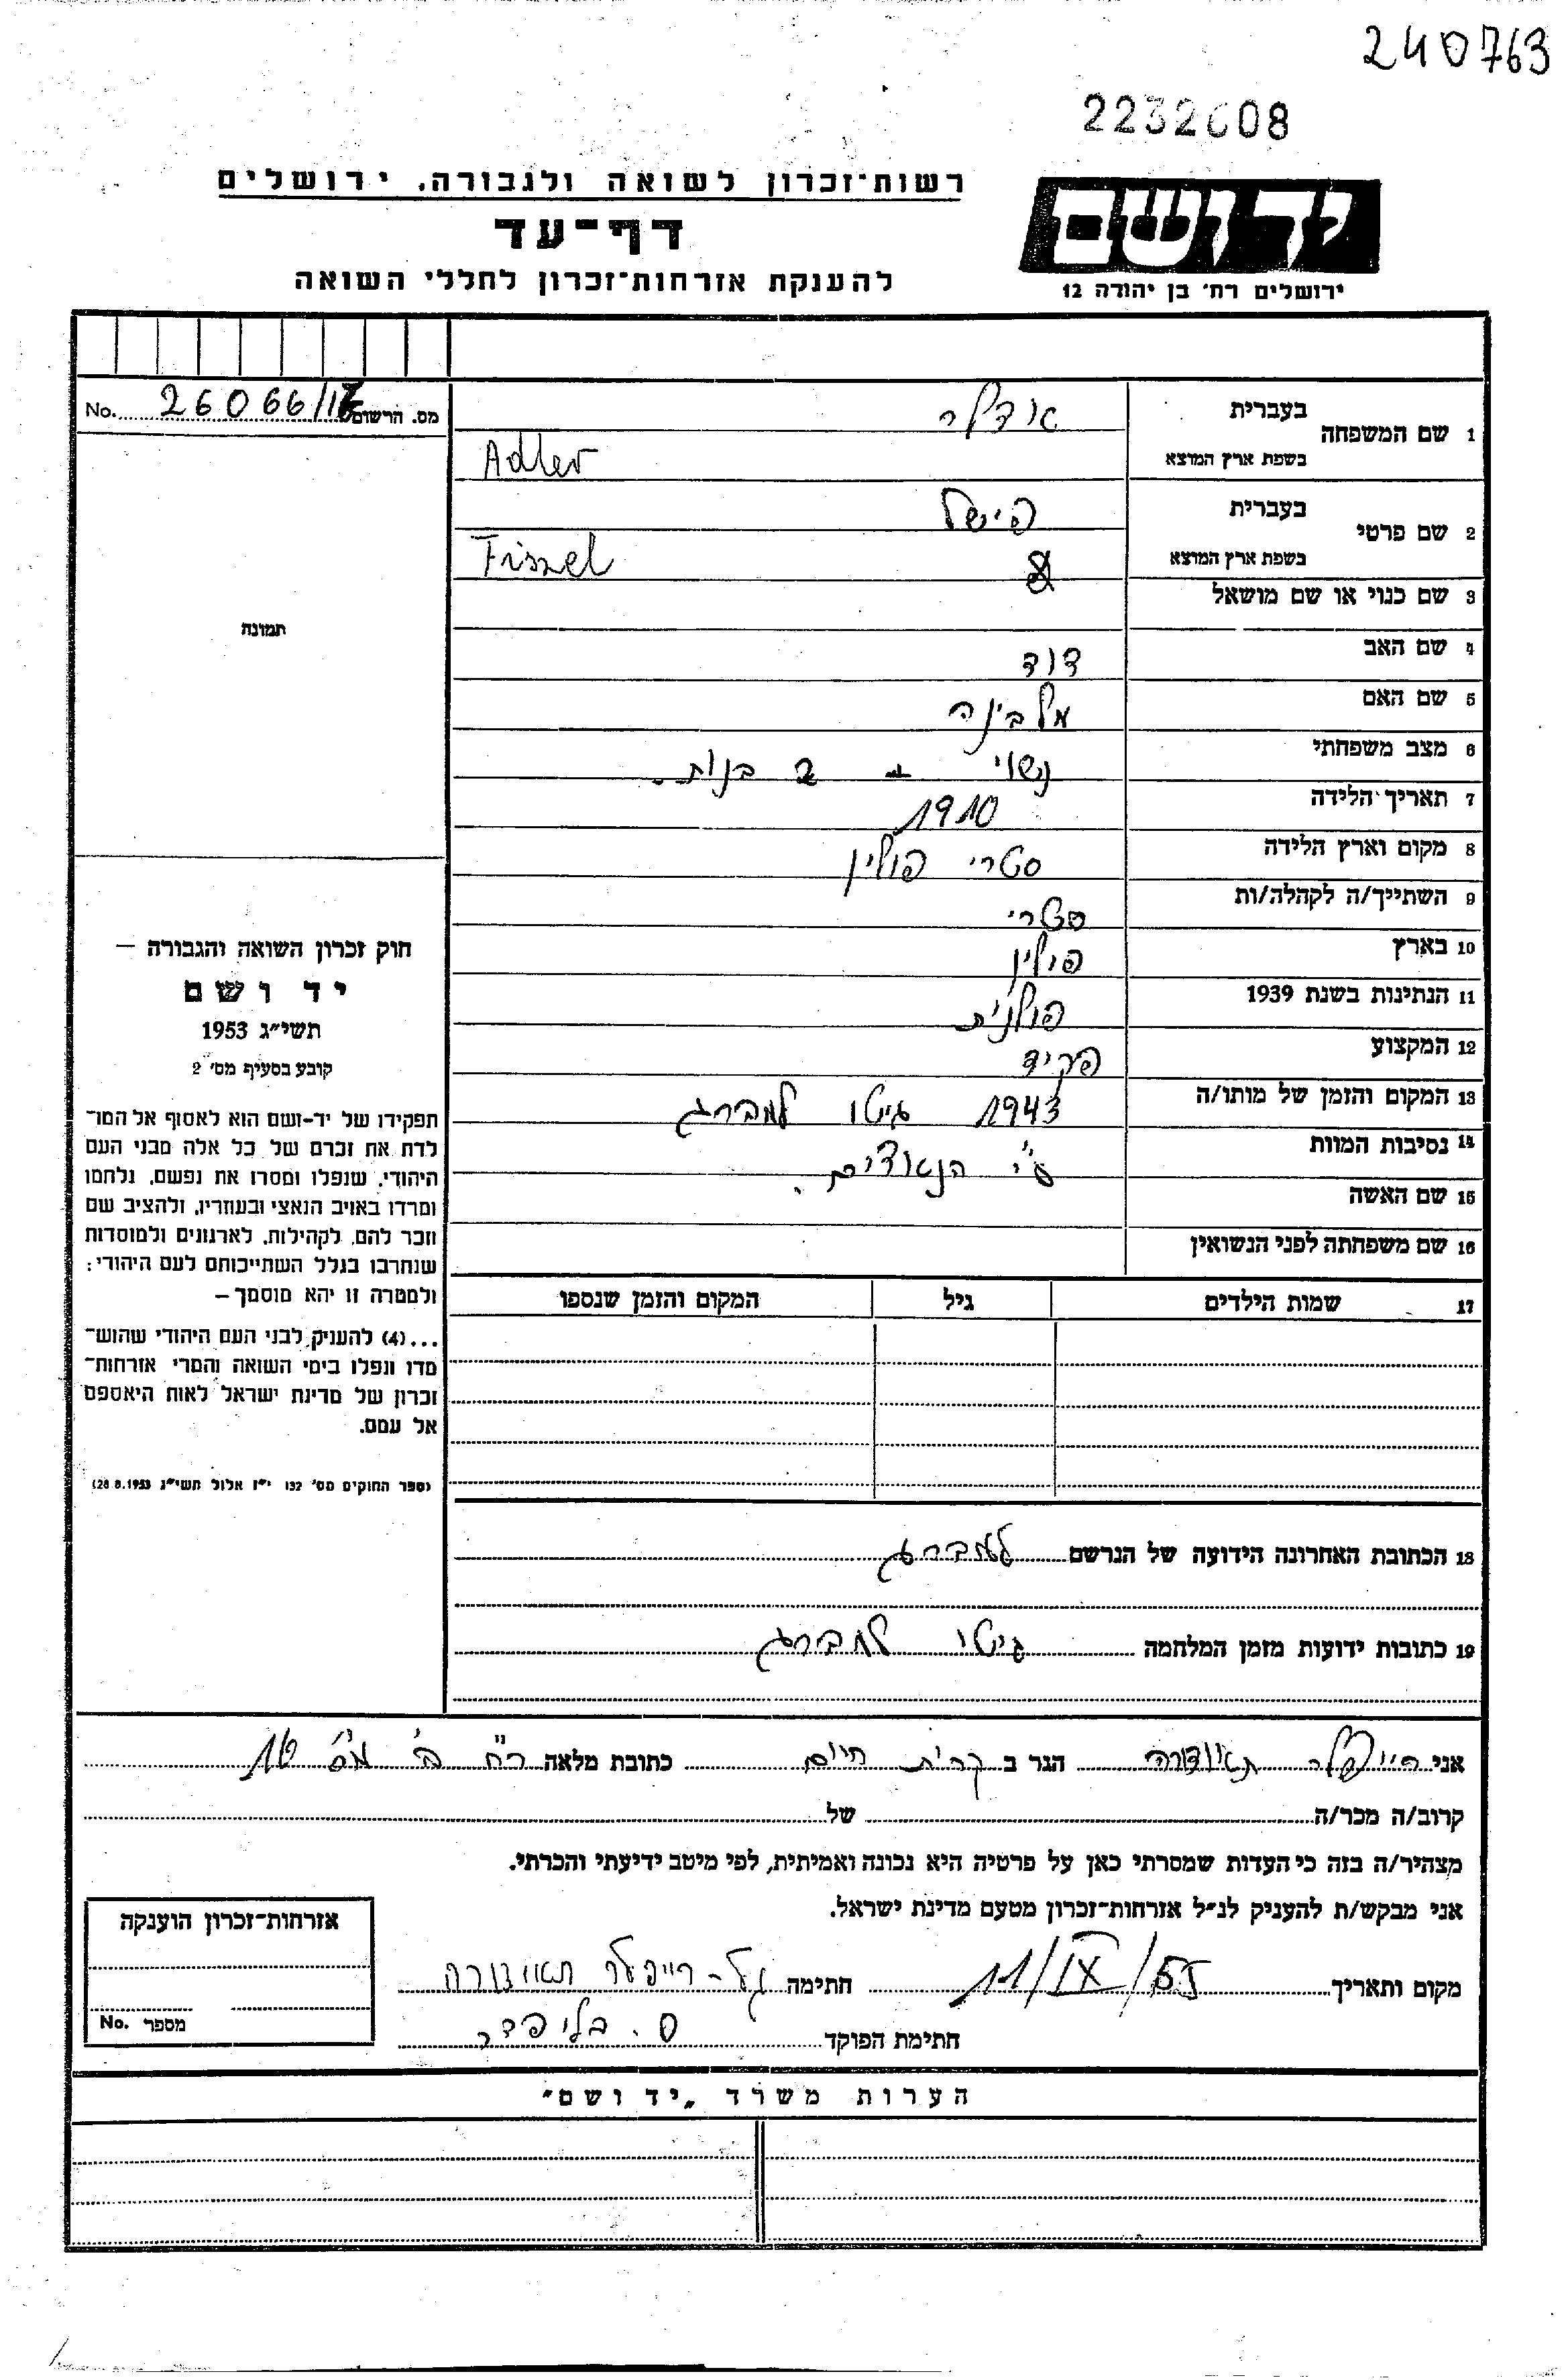 240763
2232608
רשות־זכרון לשואה ולגבורה, ירושלים
דף־עד
להענקת אזרחות־זכרון לחללי השואה
יד ושם
ירושלים רח׳ בן יהודה 12
No. 26066/17 מס. הרשום
1 שם המשפחה
בעברית אדלר
בשפת ארץ המוצא Adler
2 שם פרטי
בעברית פישל
בשפת ארץ המוצא Fiszel
3 שם כנוי או שם מושאל
4 שם האב דוד
5 שם האם מלבינה
6 מצב משפחתי נשוי - 2 בנות.
7 תאריך הלידה 1910
8 מקום וארץ הלידה סטרי פולין
9 השתייך/ה לקהלה/ות סטרי
10 בארץ פולין
11 הנתינות בשנת 1939 פולנית
12 המקצוע פקיד
13 המקום והזמן של מותו/ה 1943 גיטו למברג
14 נסיבות המוות ע"י הנאצים.
15 שם האשה
16 שם משפחתה לפני הנשואין
17 שמות הילדים גיל המקום והזמן שנספו
תמונה
חוק זכרון השואה והגבורה —
יד ושם
תשי״ג 1953
קובע בסעיף מס׳ 2
תפקידו של יד־ושם הוא לאסוף אל המו־
לדת את זכרם של כל אלה מבני העם
היהודי, שנפלו ומסרו את נפשם, נלחמו
ומרדו באויב הנאצי ובעוזריו, ולהציב שם
וזכר להם, לקהילות, לארגונים ולמוסדות
שנחרבו בגלל השתייכותם לעם היהודי:
ולמטרה זו יהא מוסמך —
...(4) להעניק לבני העם היהודי שהוש־
מדו ונפלו בימי השואה והמרי אזרחות־
זכרון של מדינת ישראל לאות היאספם
אל עמם.
(ספר החוקים מס׳ 132 י״ז אלול תשי״ג 28.8.1953)
18 הכתובת האחרונה הידועה של הנרשם למברג
19 כתובות ידועות מזמן המלחמה גיטו למברג
אני תיאודורה הגר ב קרית חיים כתובת מלאה רח' ב' מס' 16
קרוב/ה מכר/ה של
מצהיר/ה בזה כי העדות שמסרתי כאן על פרטיה היא נכונה ואמיתית, לפי מיטב ידיעתי והכרתי.
אני מבקש/ת להעניק לנ״ל אזרחות־זכרון מטעם מדינת ישראל.
מקום ותאריך 11/IX/55 חתימה תיאודורה
חתימת הפוקד
אזרחות־זכרון הוענקה
מספר No.
הערות משרד „יד ושם״